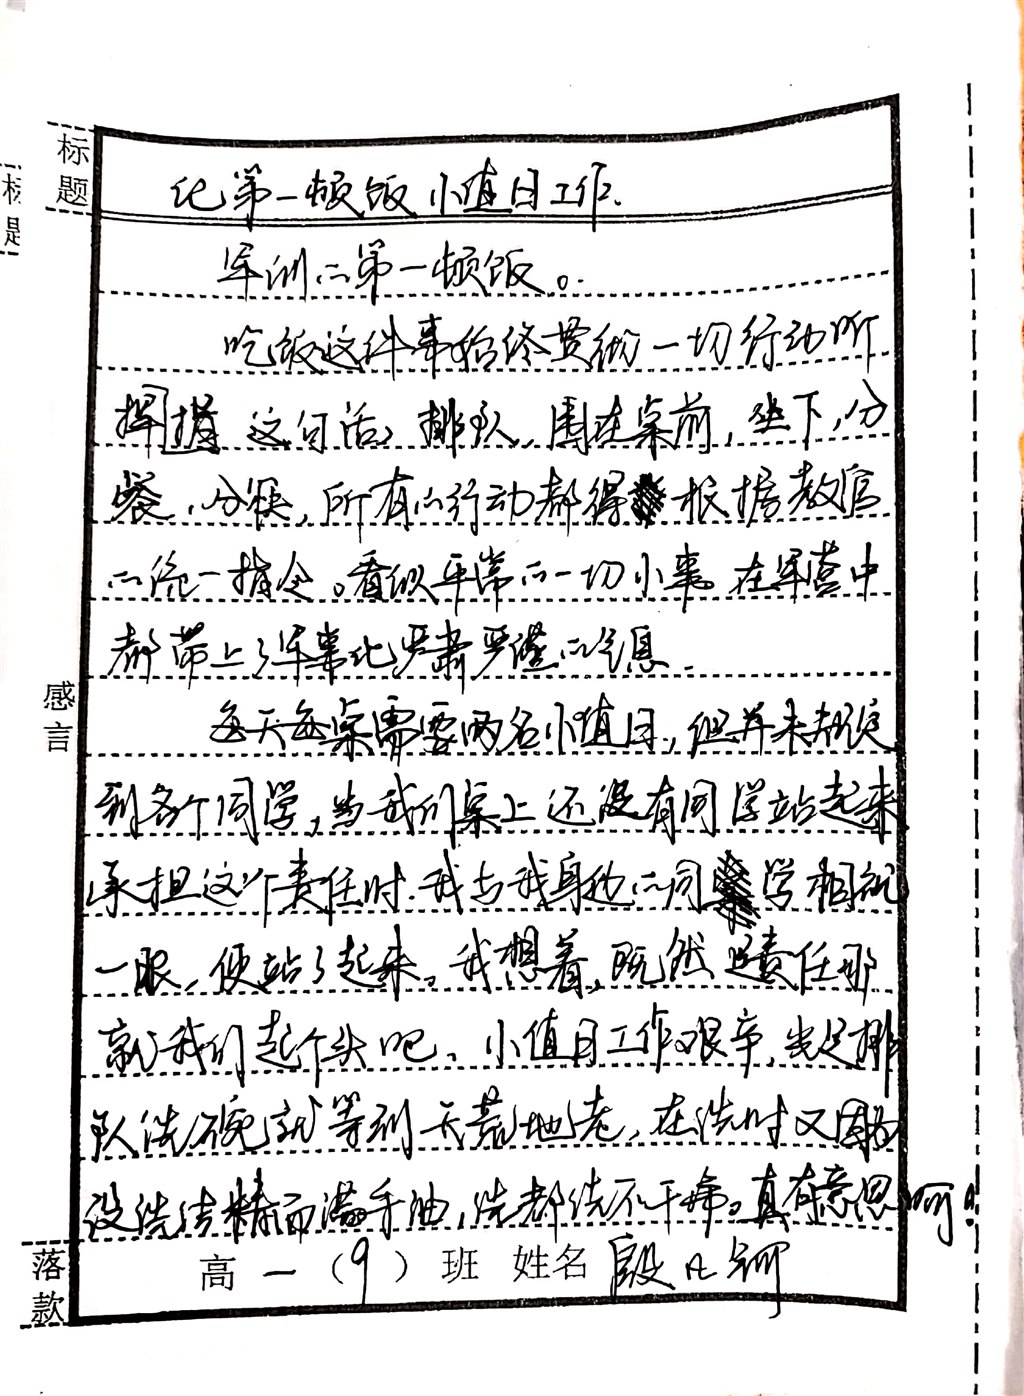 标题
记第一顿饭 小值日工作.
军训的第一顿饭。
吃饭这件事始终贯彻一切行动听
指挥 这句话, 排队, 围在桌前, 坐下, 分
餐, 分筷, 所有的行动都得 根据教官
的统一指令。看似平常的一切小事 在军营中
都带上了军事化严肃严谨的气息.
每天每桌需要两名小值日, 但并未规定
到各个同学, 当我们桌上还没有同学站起来
承担这个责任时. 我与我身边的同 学相视
一眼, 便站了起来。我想着, 既然是责任那
就我们起个头吧。小值日工作艰辛, 光是排
队洗碗就等到天荒地老, 在洗时又因为
没洗洁精而满手油, 洗都洗不干净。真有意思啊!
感言
落款
高一(9)班 姓名 段
标
题